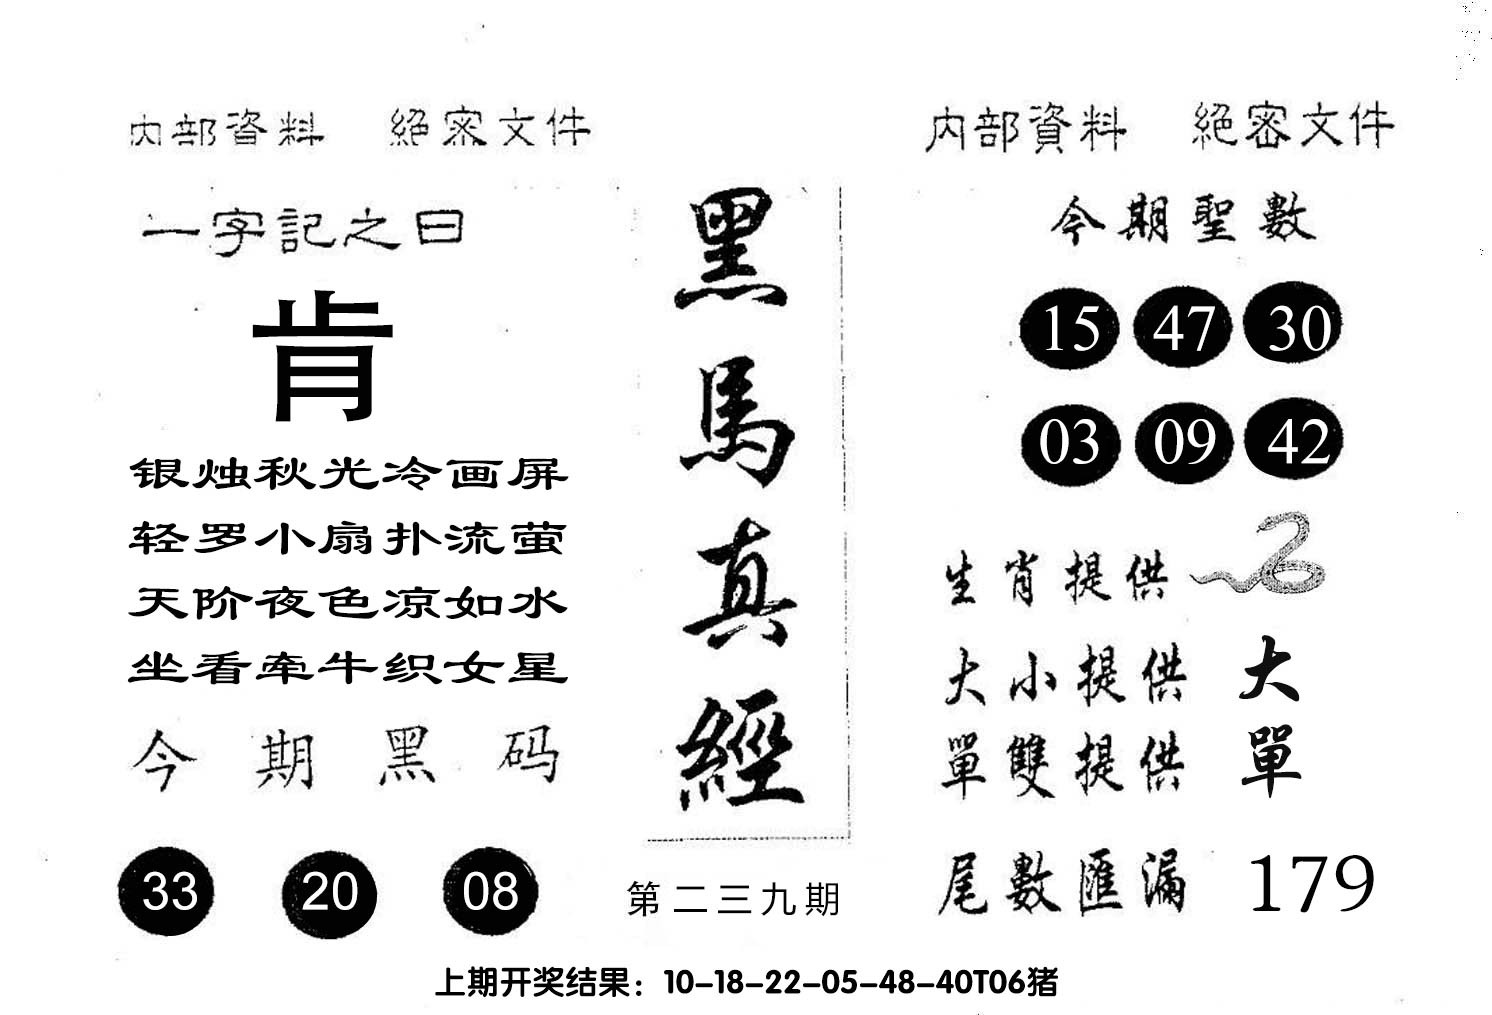 内部資料 絕密文件
一字記之曰
肯
银烛秋光冷画屏
轻罗小扇扑流萤
天阶夜色凉如水
坐看牵牛织女星
今期黑码
33 20 08
黑馬真經
第二三九期
内部資料 絕密文件
今期聖數
15 47 30
03 09 42
生肖提供
大小提供 大
單雙提供 單
尾數匯漏 179
上期开奖结果：10-18-22-05-48-40T06猪